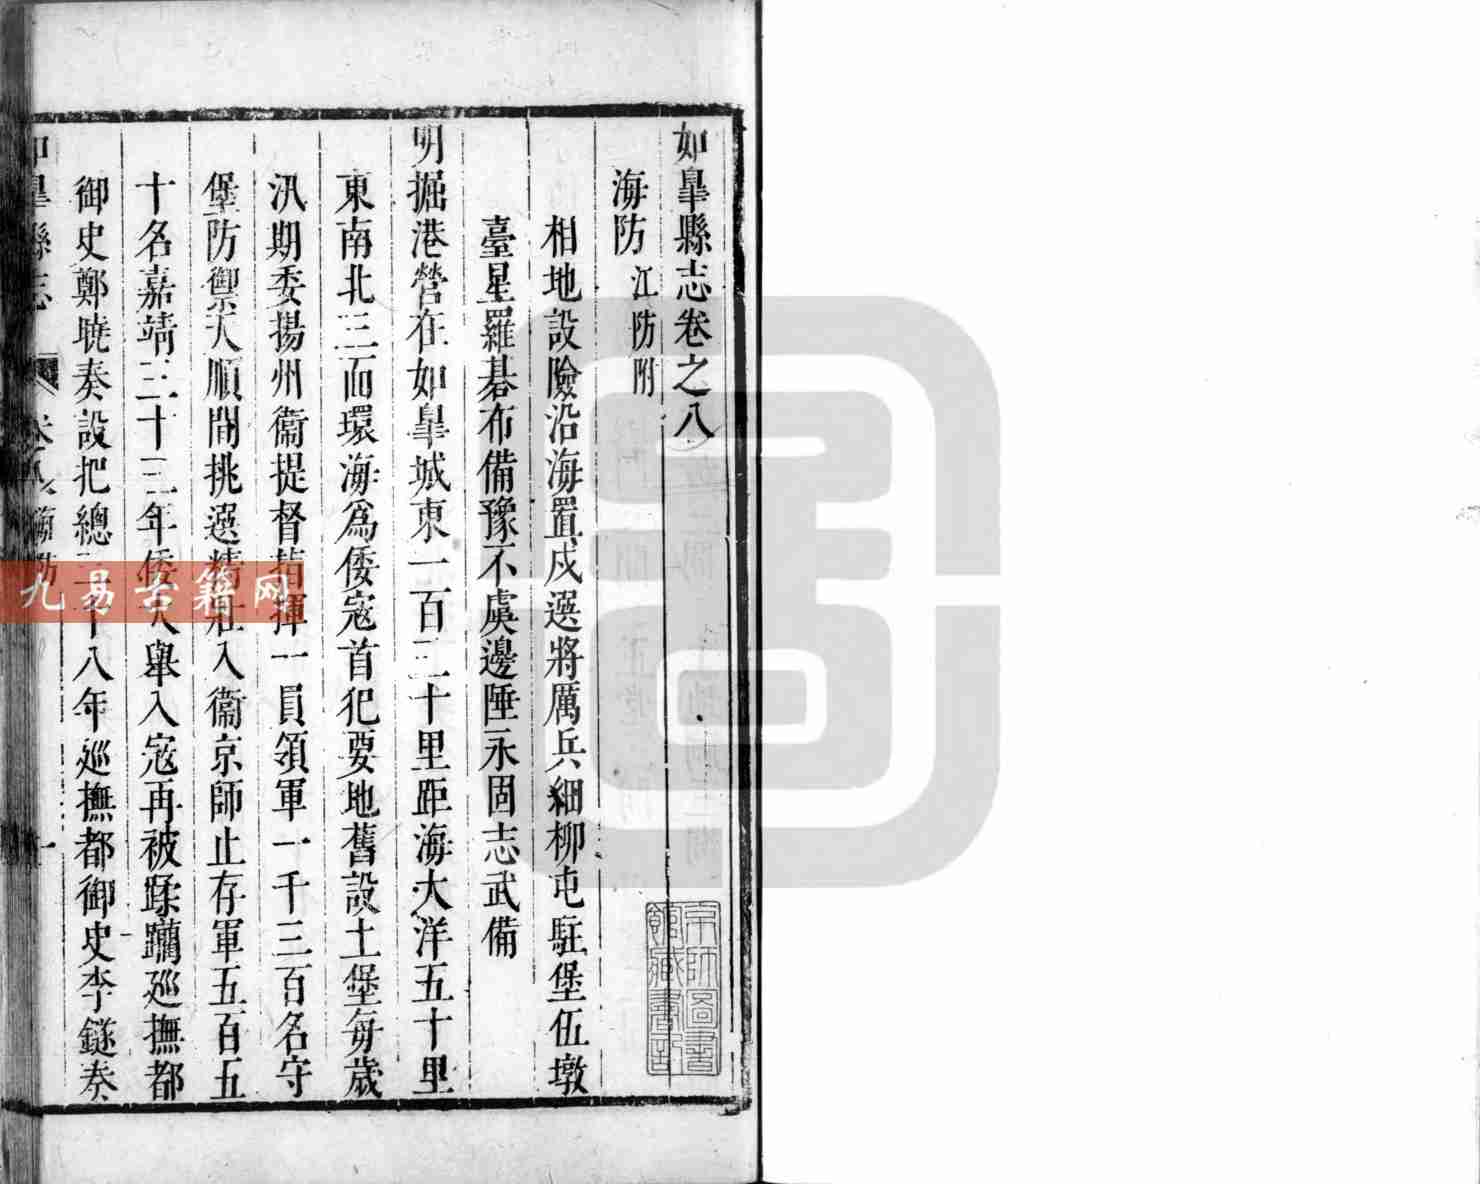 如皐縣志卷之八
海防 江防附
相地設險沿海置戍選將厲兵細柳屯駐堡伍墩
臺星羅碁布備豫不虞邊陲永固志武備
明掘港營在如皐城東一百三十里距海大洋五十里
東南北三面環海爲倭寇首犯要地舊設土堡每歲
汛期委揚州衞提督指揮一員領軍一千三百名守
堡防禦天順間挑選精壯入衞京師止存軍五百五
十名嘉靖三十三年倭大舉入寇再被蹂躪廵撫都
御史鄭曉奏設把總三十八年廵撫都御史李鐩奏
如皐縣志 卷八 海防 一
九易古籍网
京師圖書館藏書記